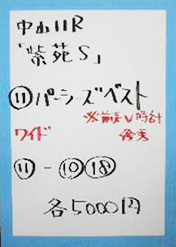 中山11R
「紫苑S」
⑪パーシーズベスト
※前走V時計
ワイド 優秀
⑪-⑩⑱
各5000円